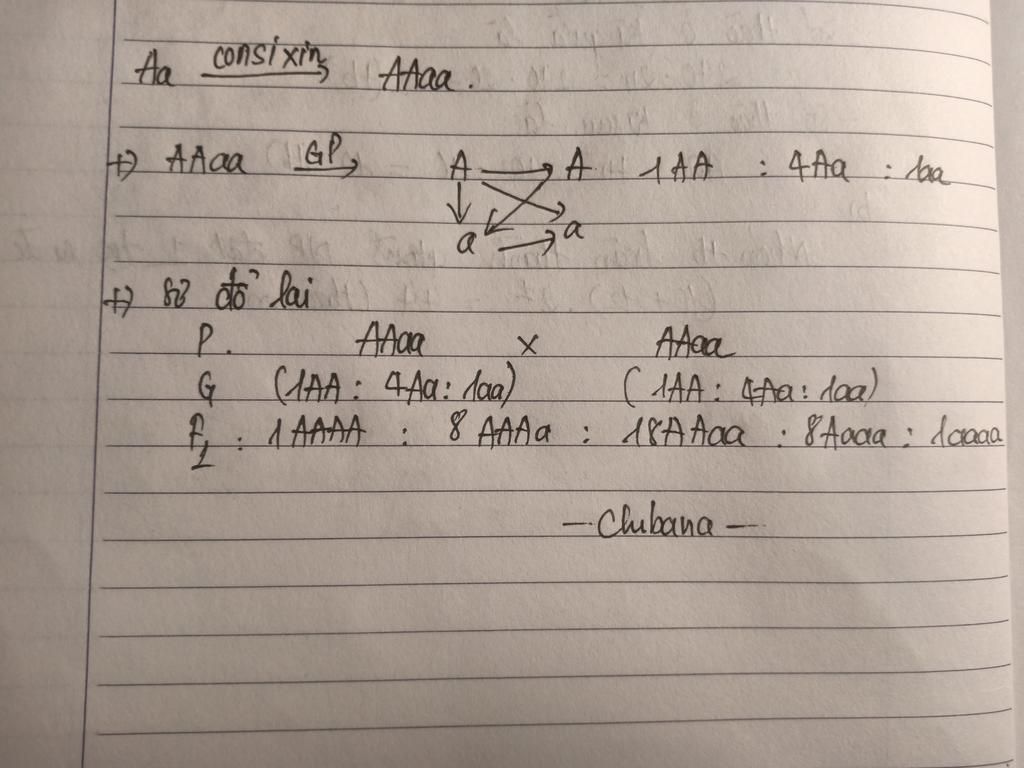 Aa consixin AAaa.
+) AAaa GP A A 1AA : 4Aa : 1aa
a a
+) sơ đồ lai
P. AAaa x AAaa
G (1AA : 4Aa : 1aa) (1AA : 4Aa : 1aa)
F1 : 1AAAA : 8AAAa : 18AAaa : 8Aaaa : 1aaaa
— Chibana —